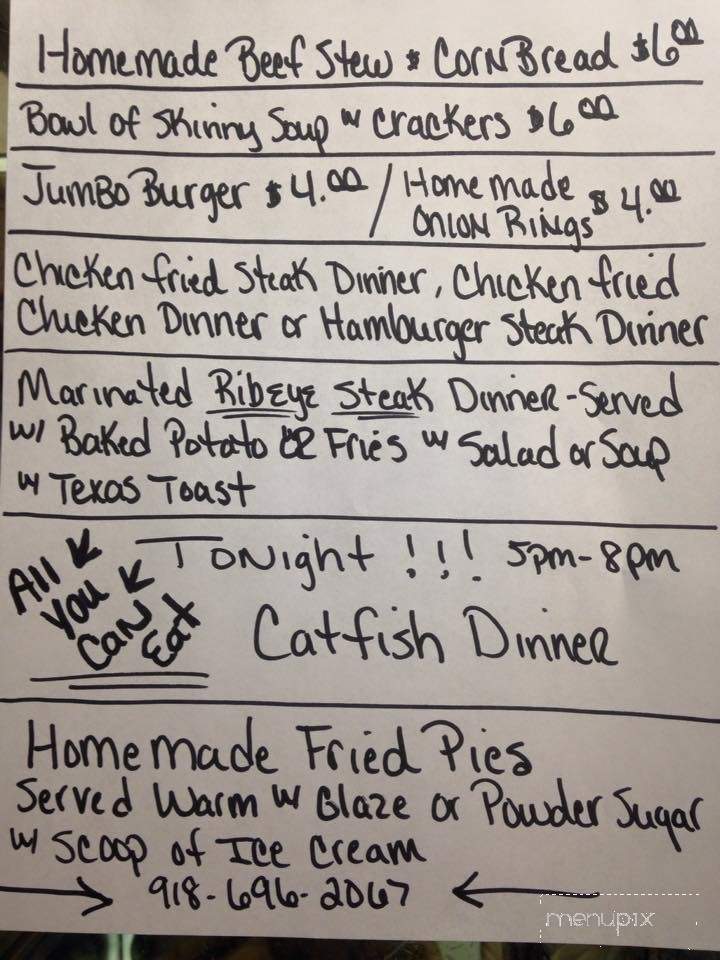 Homemade Beef Stew & Corn Bread $6.00
Bowl of Skinny Soup w Crackers $6.00
Jumbo Burger $4.00 / Homemade Onion Rings $4.00
Chicken fried Steak Dinner, Chicken fried
Chicken Dinner or Hamburger Steak Dinner
Marinated Ribeye Steak Dinner - Served
w/ Baked Potato or Fries w Salad or Soup
w Texas Toast
All You Can Eat
Tonight!!! 5pm-8pm
Catfish Dinner
Homemade Fried Pies
Served Warm w Glaze or Powder Sugar
w/ Scoop of Ice Cream
918-696-2067
menupix